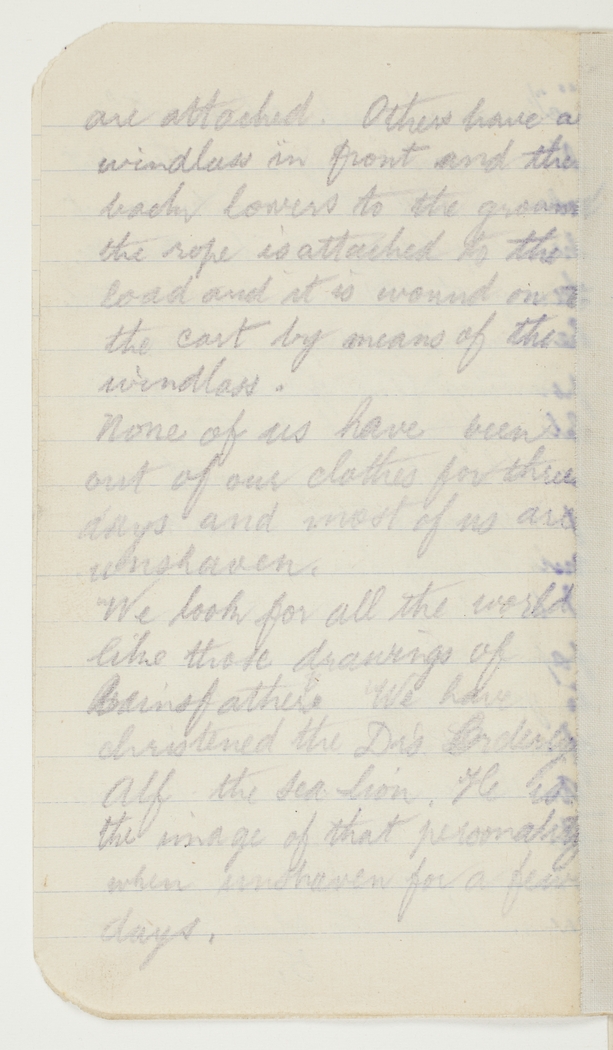 are attached. Others have a
windlass in front and the
back lowers to the ground
the rope is attached to the
load and it is wound on to
the cart by means of the
windlass.
None of us have been
out of our clothes for three
days and most of us are
unshaven.
We look for all the world
like those drawings of
Bainsfather's We have
christened the Drs Orderly
Alf the Sea Lion. He is
the image of that personality
when unshaven for a few
days.